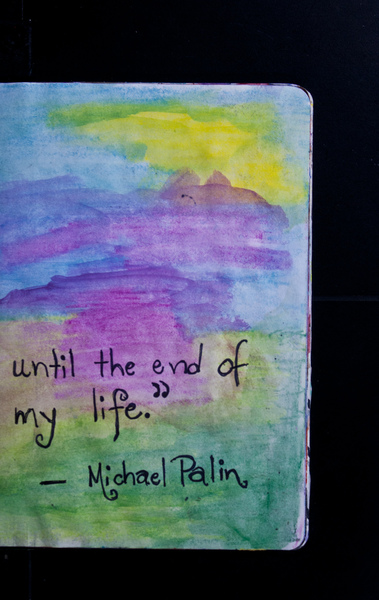 until the end of
my life.”
— Michael Palin